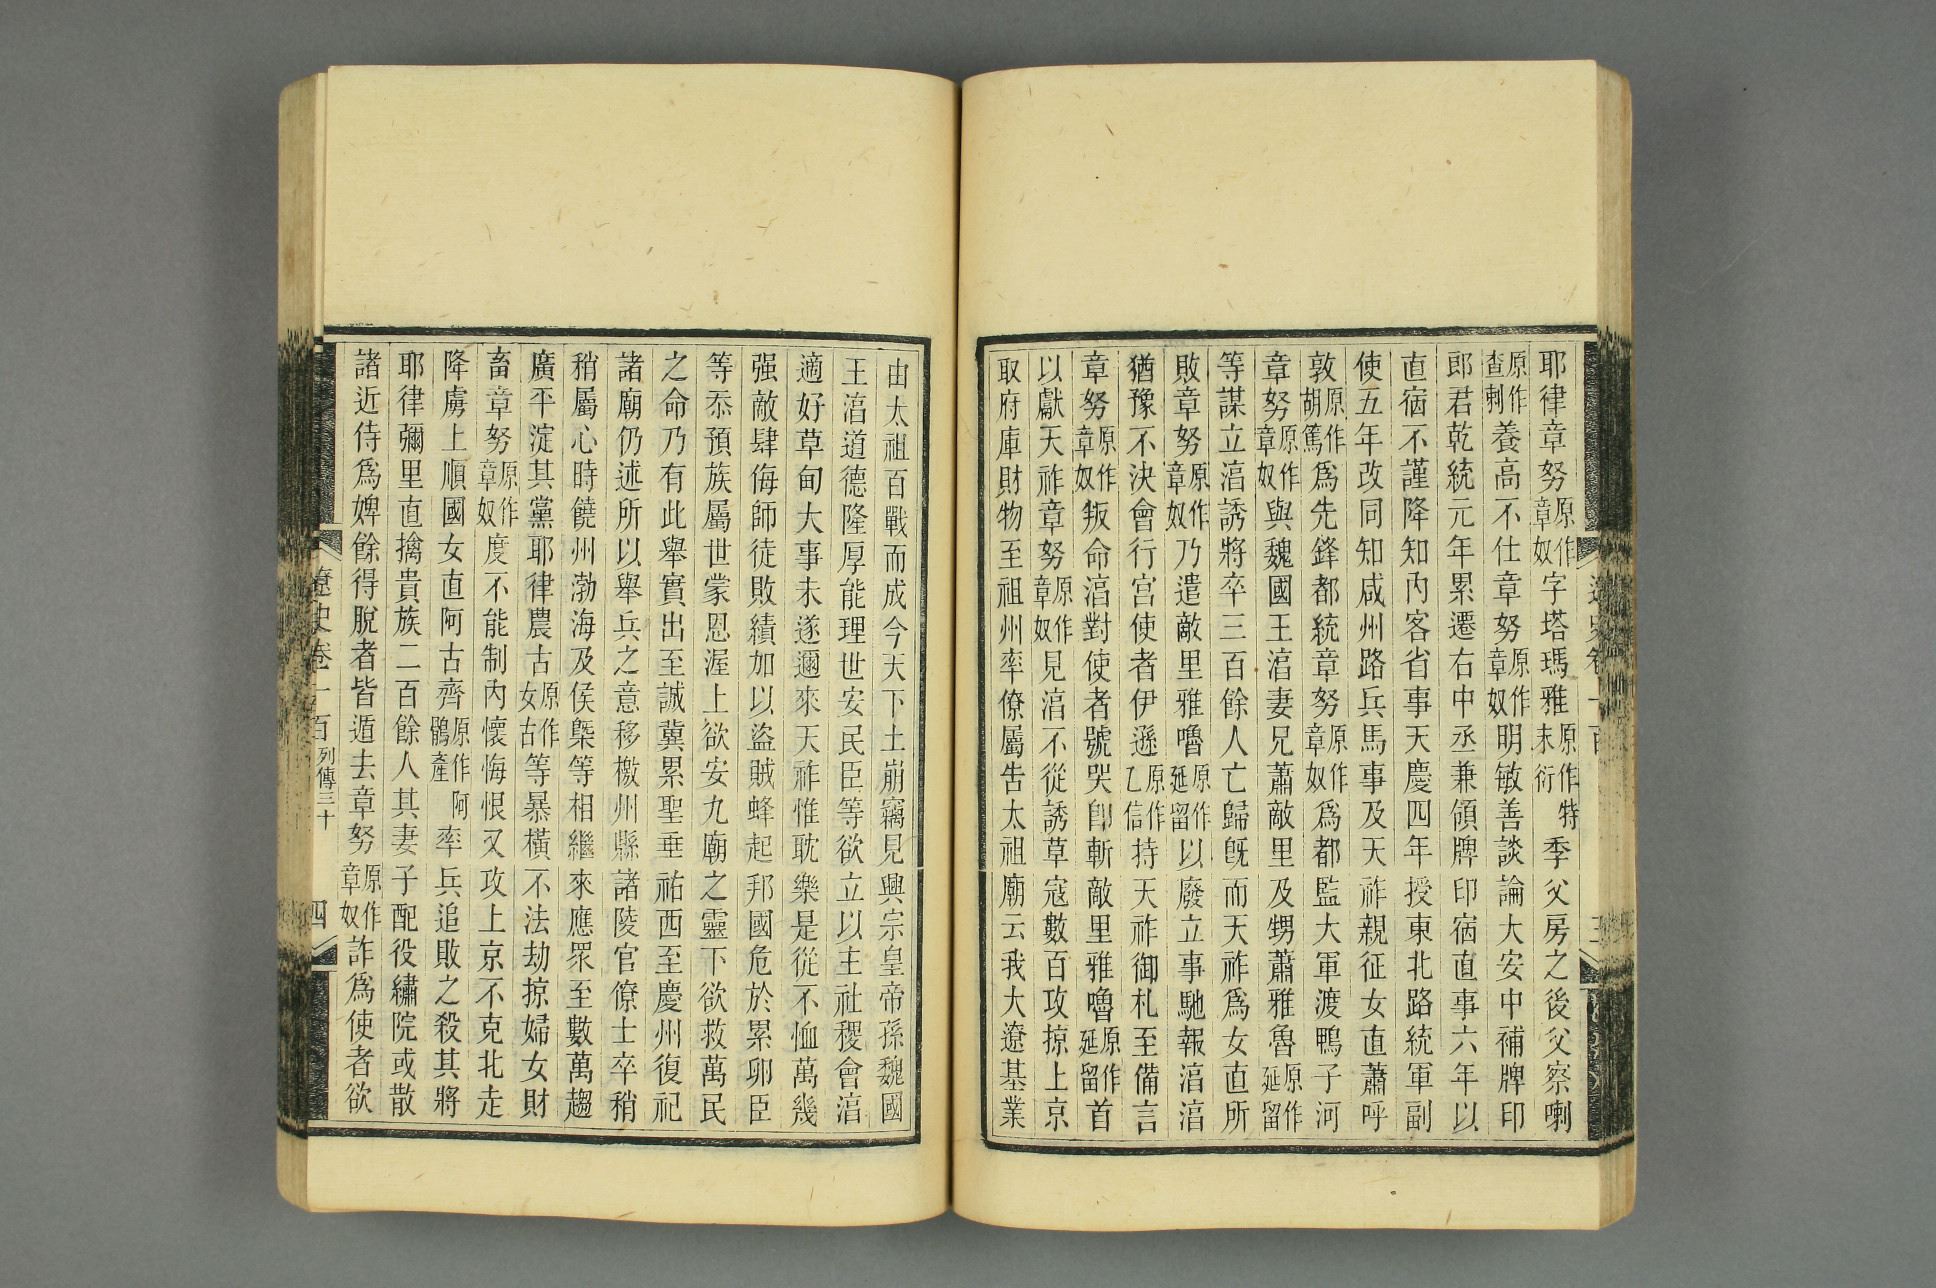 耶律章努原作章奴字塔瑪雅原作特末衍季父房之後父察喇
原作查剌養高不仕章努原作章奴明敏善談論大安中補牌印
郎君乾統元年累遷右中丞兼領牌印宿直事六年以
直宿不謹降知內客省事天慶四年授東北路統軍副
使五年改同知咸州路兵馬事及天祚親征女直蕭呼
敦原作胡篤爲先鋒都統章努原作章奴爲都監大軍渡鴨子河
章努原作章奴與魏國王淳妻兄蕭敵里及甥蕭雅魯原作延留
等謀立淳誘將卒三百餘人亡歸旣而天祚爲女直所
敗章努原作章奴乃遣敵里雅嚕原作延留以廢立事馳報淳淳
猶豫不決會行宮使者伊遜原作乙信持天祚御札至備言
章努原作章奴叛命淳對使者號哭卽斬敵里雅嚕原作延留首
以獻天祚章努原作章奴見淳不從誘草寇數百攻掠上京
取府庫財物至祖州率僚屬告太祖廟云我大遼基業
由太祖百戰而成今天下土崩竊見興宗皇帝孫魏國
王淳道德隆厚能理世安民臣等欲立以主社稷會淳
適好草甸大事未遂邇來天祚惟耽樂是從不恤萬幾
强敵肆侮師徒敗績加以盜賊蜂起邦國危於累卵臣
等忝預族屬世蒙恩渥上欲安九廟之靈下欲救萬民
之命乃有此舉實出至誠冀累聖垂祐西至慶州復祀
諸廟仍述所以舉兵之意移檄州縣諸陵官僚士卒稍
稍屬心時饒州渤海及侯槩等相繼來應眾至數萬趨
廣平淀其黨耶律農古原作女古等暴橫不法劫掠婦女財
畜章努原作章奴度不能制內懷悔恨又攻上京不克北走
降虜上順國女直阿古齊原作阿鶻產率兵追敗之殺其將
耶律彌里直擒貴族二百餘人其妻子配役繡院或散
諸近侍爲婢餘得脫者皆遁去章努原作章奴詐爲使者欲
遼史卷一百 列傳三十 四